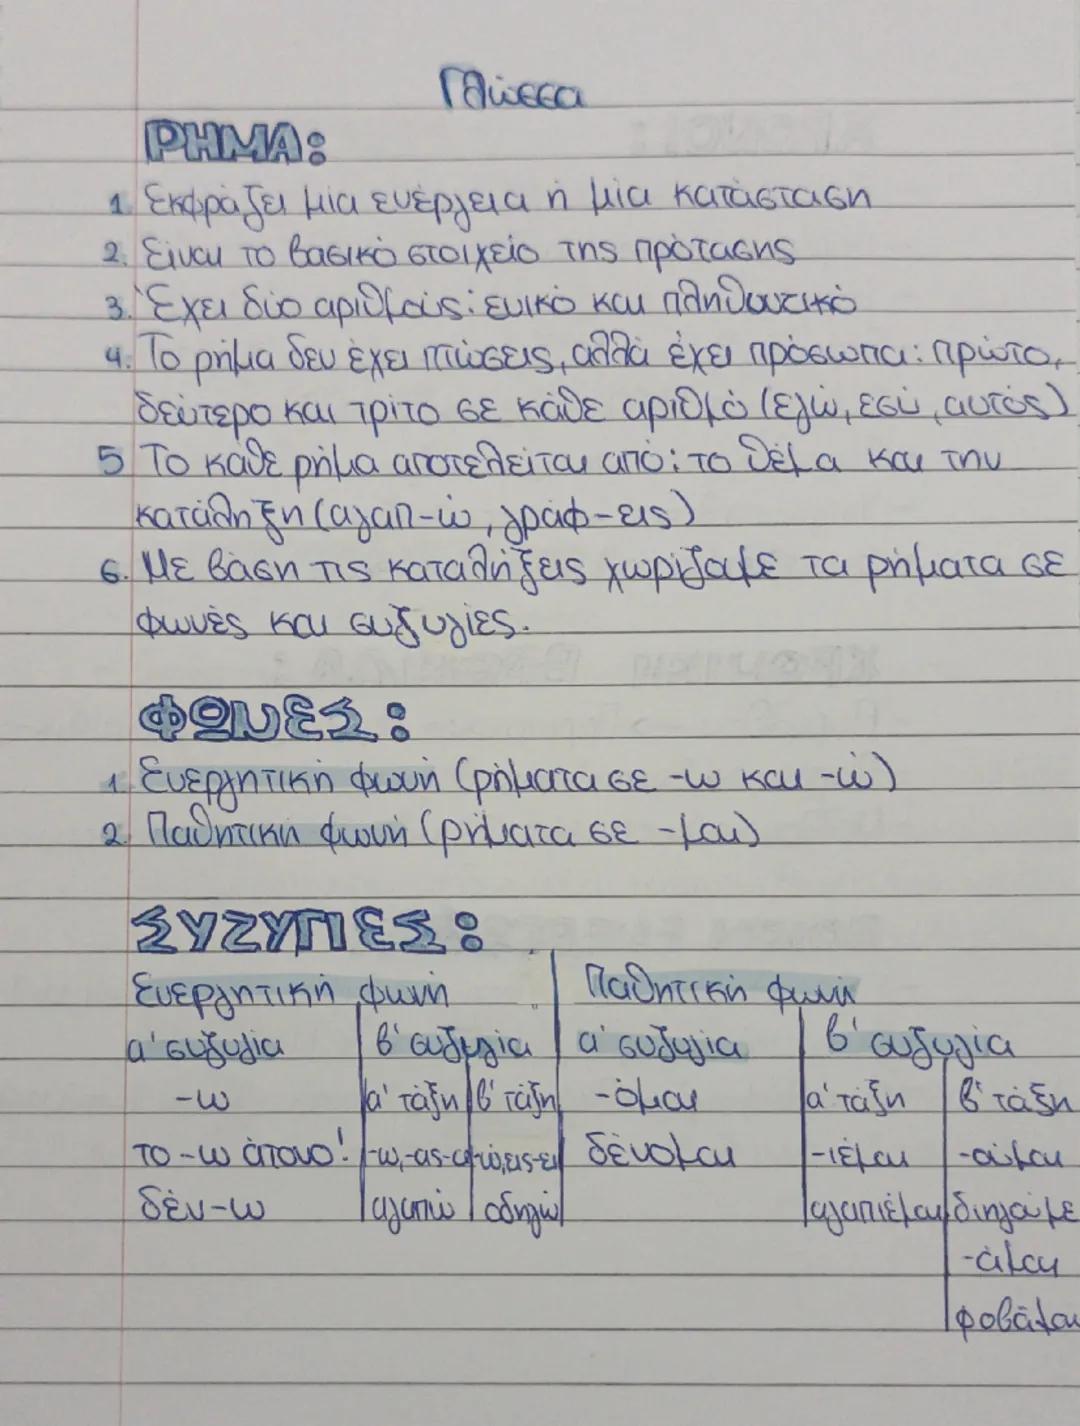 Γλώσσα
ΡΗΜΑ:
1. Εκφράζει μία ενέργεια ή μία κατάσταση
2. Είναι το βασικό στοιχείο της πρότασης
3. Έχει δύο αριθμούς: ενικό και πληθυντικό
4. Το ρήμα δεν έχει πτώσεις, αλλά έχει πρόσωπα: πρώτο,
δεύτερο και τρίτο σε κάθε αριθμό (εγώ, εσύ, αυτός)
5 Το κάθε ρήμα αποτελείται από: το θέμα και την
κατάληξη (αγαπ-ώ, γράφ-εις)
6. Με βάση τις καταλήξεις χωρίζουμε τα ρήματα σε
φωνές και συζυγίες.
ΦΩΝΕΣ:
1. Ενεργητική φωνή (ρήματα σε -ω και -ώ)
2. Παθητική φωνή (ρήματα σε -μαι)
ΣΥΖΥΓΙΕΣ:
Ενεργητική φωνή Παθητική φωνή
α' συζυγία β' συζυγία α' συζυγία β' συζυγία
-ω α' τάξη β' τάξη -όμαι α' τάξη β' τάξη
το -ω άτονο! -ώ,-ας-α -ώ,εις-ει δένομαι -ιέμαι -ούμαι
δέν-ω αγαπώ οδηγώ αγαπιέμαι
-άμαι
φοβάμαι